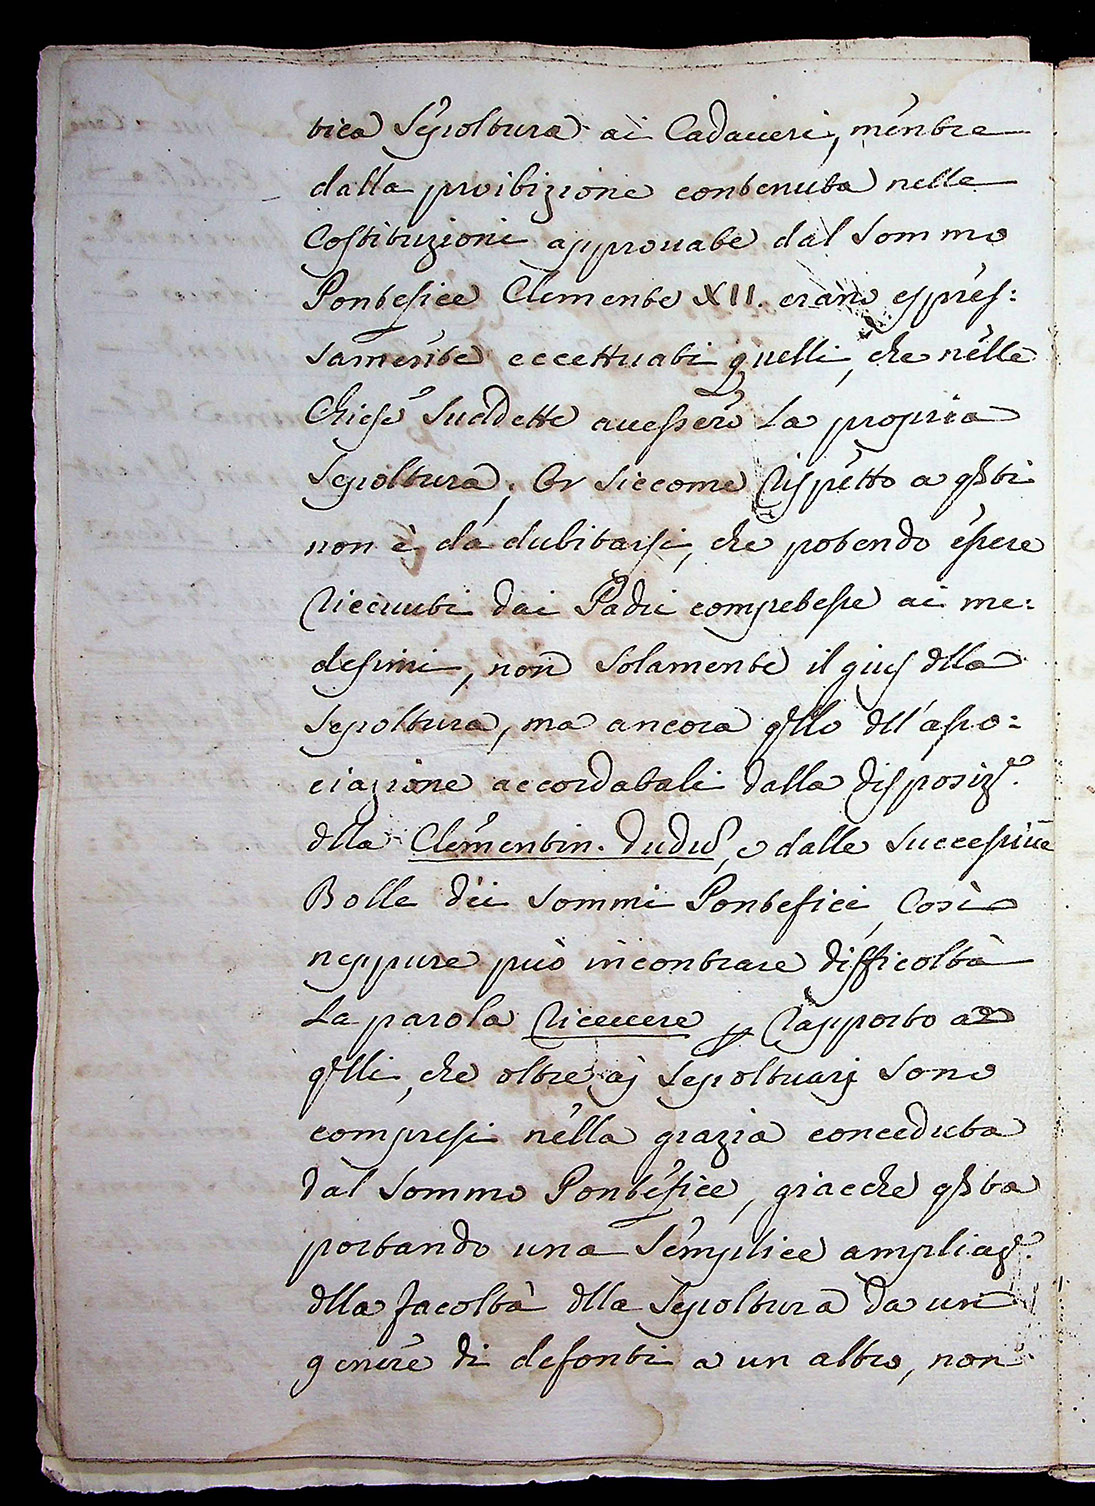 tica Sepoltura ai Cadaveri, mentre
dalla proibizione contenuta nelle
Costituzioni approvate dal Sommo
Pontefice Clemente XII. erano espres:
samente eccettuati quelli, che nelle
Chiese suddette avessero la propria
Sepoltura; Or siccome rispetto a qsti
non è da dubitarsi, che potendo essere
ricevuti dai Padri competesse ai me:
desimi, non solamente il gius dlla
Sepoltura, ma ancora qllo dll'asso:
ciazione accordatali dalla disposize.
dlla Clementin. Dudum, e dalle successive
Bolle dei Sommi Pontefici, Così
neppure può incontrare difficoltà
la parola ricevere p rapporto a
qlli, che oltre aj Sepoltuarj sono
compresi nella grazia conceduta
dal Sommo Pontefice, giacche qsta
portando una semplice ampliaze.
dlla facoltà dlla Sepoltura da un
genere di defonti a un altro, non